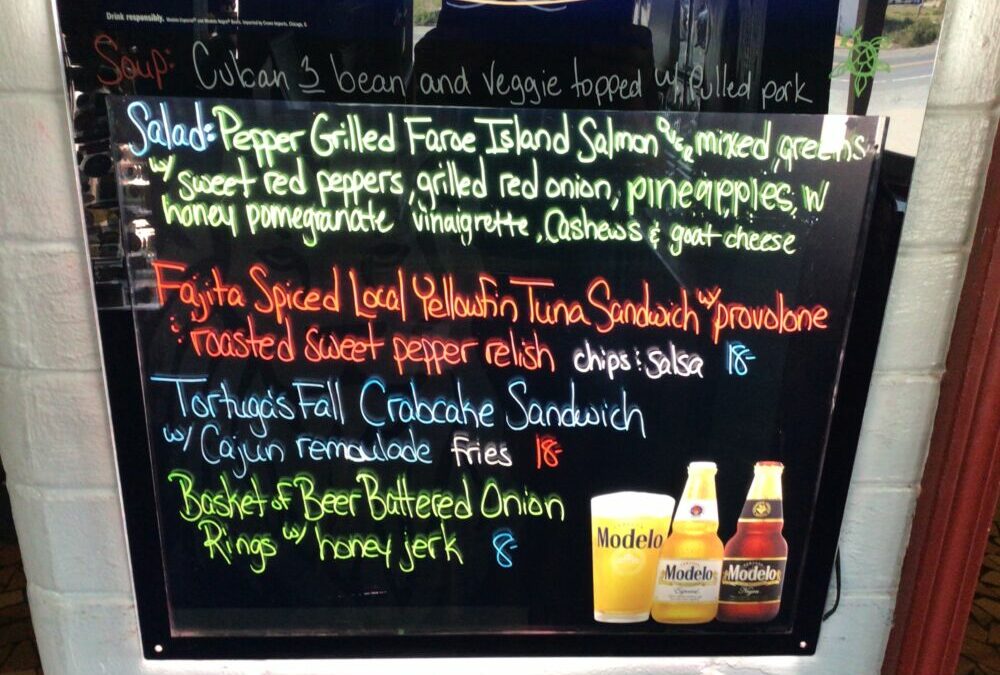 Drink responsibly. Modelo Especial® and Modelo Negra® Beers. Imported by Crown Imports, Chicago, IL
Soup: Cuban 3 bean and veggie topped w/ Pulled pork
Salad: Pepper Grilled Faroe Island Salmon over mixed greens
w/ sweet red peppers, grilled red onion, pineapples, w/
honey pomegranate vinaigrette, Cashews & goat cheese
Fajita Spiced Local Yellowfin Tuna Sandwich w/ provolone
& roasted sweet pepper relish chips & salsa 18-
Tortuga's Fall Crabcake Sandwich
w/ Cajun remoulade fries 18-
Basket of Beer Battered Onion
Rings w/ honey jerk 8-
Modelo
Modelo
Especial
Modelo
Negra